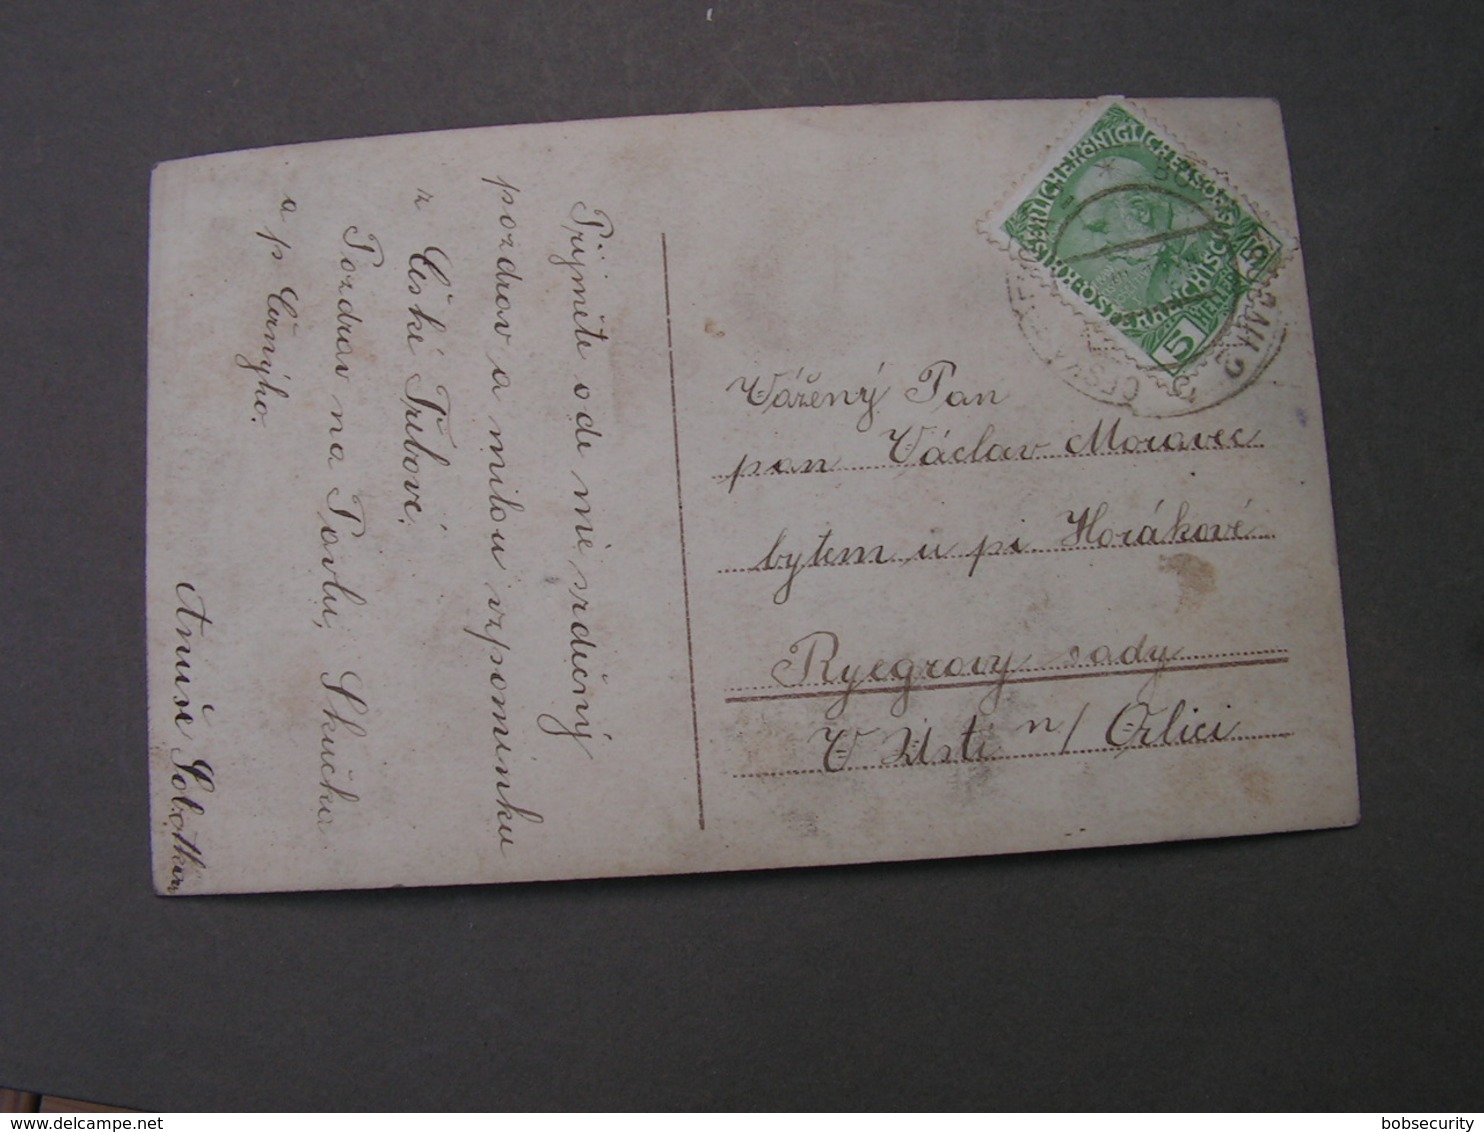 Přijměte ode mě srdečný
pozdrav a milou vzpomínku
z České Třebové.
Pozdrav na Pavlu, Skučka
a p Černýho.
Anuše Sobotkov
Vážený Pan
pan Václav Moravec
bytem u pí Horákové
Ryegrovy sady
V Ústí n/ Orlici
KAISERLICHEKÖNIGLICHE
ÖSTERREICHISCHE POST
5
HELLER
bobsecurity